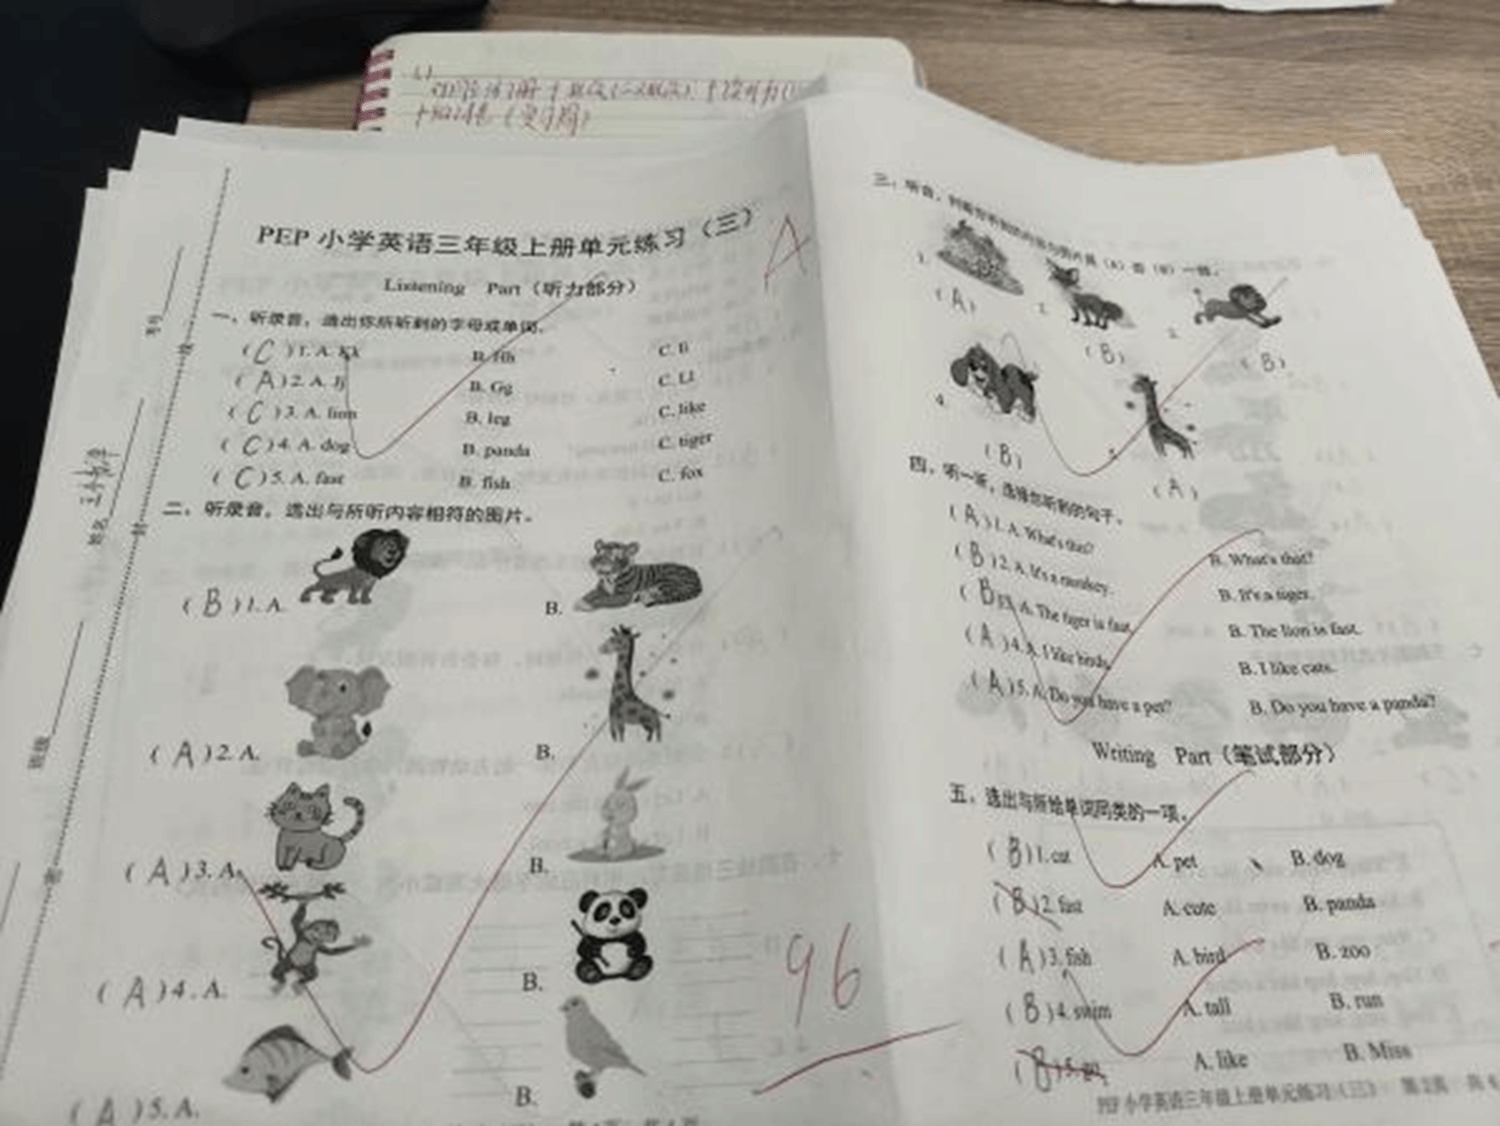 PEP 小学英语三年级上册单元练习（三）
A
Listening Part（听力部分）
一、听录音，选出你所听到的字母或单词。
( C ) 1. A. Kk B. Hh C. Ii
( A ) 2. A. Jj B. Gg C. Ll
( C ) 3. A. lion B. leg C. like
( C ) 4. A. dog B. panda C. tiger
( C ) 5. A. fast B. fish C. fox
二、听录音，选出与所听内容相符的图片。
( B ) 1. A. B.
( A ) 2. A. B.
( A ) 3. A. B.
( A ) 4. A. B.
( A ) 5. A. B.
96
姓名
班级
三、听音，
1. ( A )
2. ( B )
3. ( B )
4. ( B )
5. ( A )
四、听一听，选择你听到的句子。
( A ) 1. A. What's this? B. What's that?
( B ) 2. A. It's a monkey. B. It's a tiger.
( B ) 3. A. The tiger is fast. B. The lion is fast.
( A ) 4. A. I like birds. B. I like cats.
( A ) 5. A. Do you have a pet? B. Do you have a panda?
Writing Part（笔试部分）
五、选出与所给单词同类的一项。
( B ) 1. cat A. pet B. dog
( B ) 2. fast A. cute B. panda
( A ) 3. fish A. bird B. zoo
( B ) 4. swim A. tall B. run
( B ) 5. A. like B. Miss
PEP 小学英语三年级上册单元练习（三） 第2页